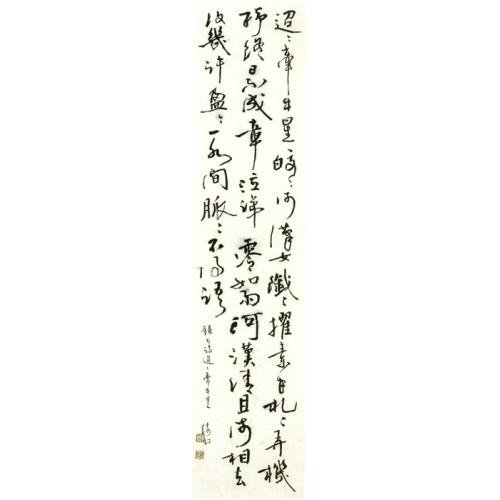 迢〻牽牛星皎〻河漢女纖〻擢素手札〻弄機
杼終日不成章泣涕零如雨河漢清且淺相去
復幾許盈〻一水間脈〻不得語
錄古詩迢〻牽牛星